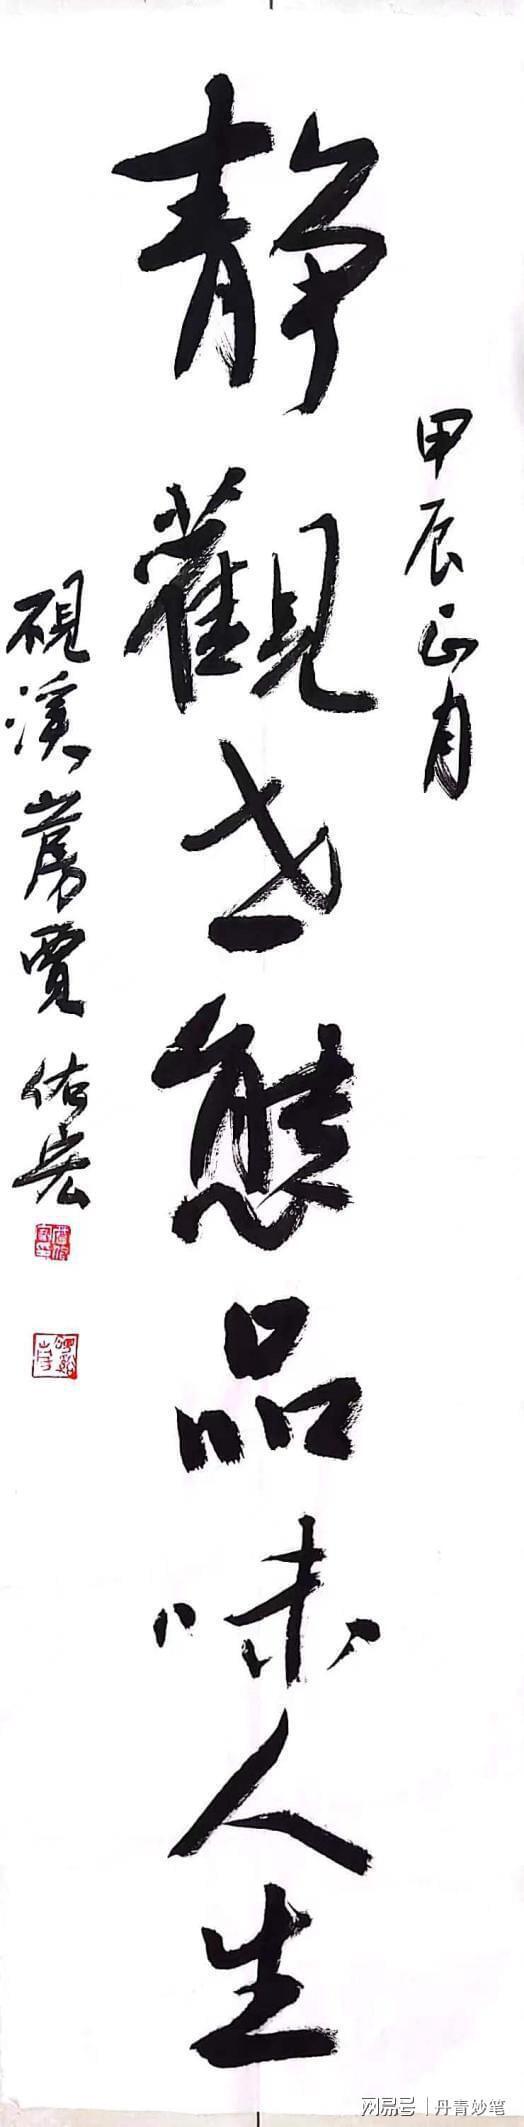 甲辰正月
靜觀世態品味人生
硯溪山房賈佑宏
网易号 | 丹青妙笔